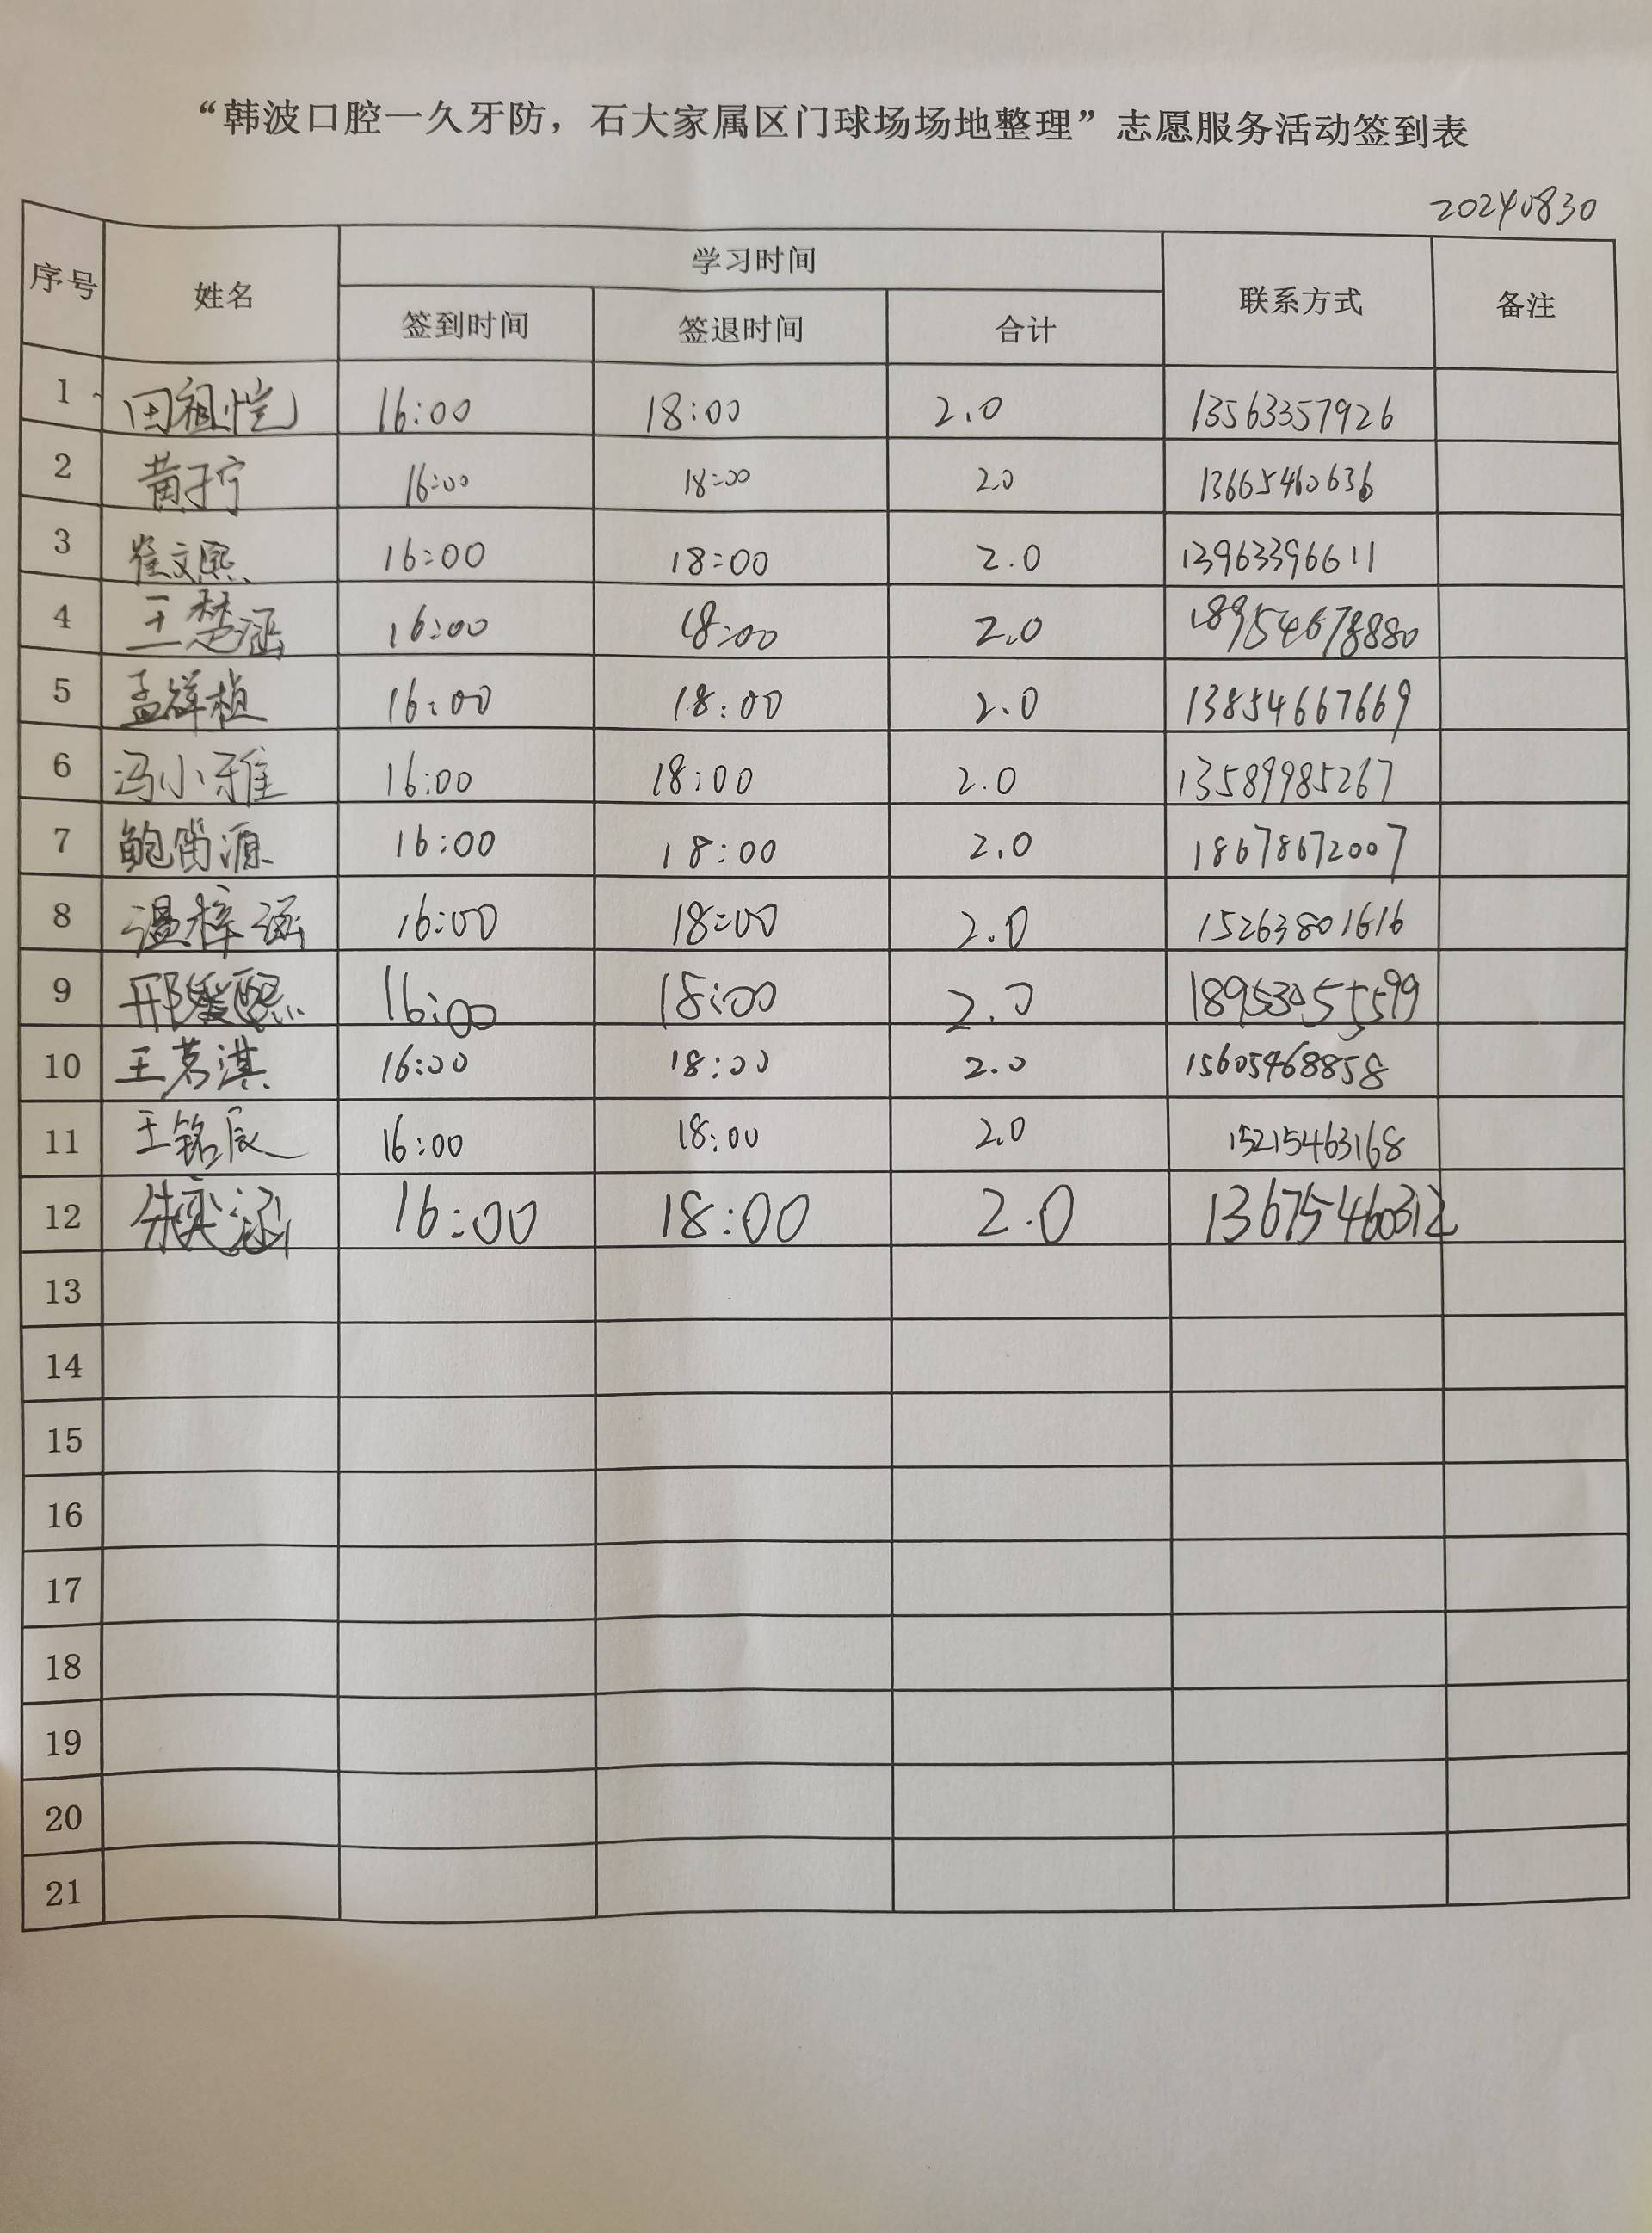 “韩波口腔一久牙防，石大家属区门球场场地整理”志愿服务活动签到表
20240830
序号 姓名 学习时间 联系方式 备注
签到时间 签退时间 合计
1 田祖恺 16:00 18:00 2.0 13563357926
2 黄子宁 16:00 18:00 2.0 13665460636
3 崔文熙 16:00 18:00 2.0 13963396611
4 王楚涵 16:00 18:00 2.0 18954678880
5 孟祥植 16:00 18:00 2.0 13854667669
6 冯小雅 16:00 18:00 2.0 13589985267
7 鲍尚源 16:00 18:00 2.0 18678672007
8 温梓涵 16:00 18:00 2.0 15263801616
9 16:00 18:00 2.0 18953055599
10 王茗淇 16:00 18:00 2.0 15605468858
11 王铭辰 16:00 18:00 2.0 15215463168
12 16:00 18:00 2.0 13675460312
13
14
15
16
17
18
19
20
21